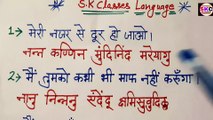 S.K Classes Language
1→ मेरी नजर से दूर हो जाओ।
नन्त कण्णिन मुंदिनिंद मरेयागु
2→ मैं तुमको कभी भी माफ नहीं करूँगा
नानु निन्तनु एंदेंदू क्षमिसुवुदिल्ल